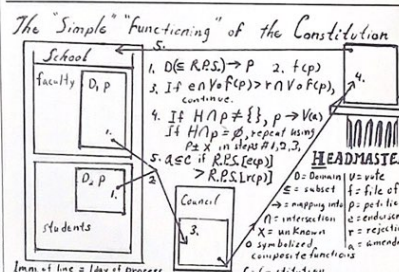 The "Simple" "Functioning" of the Constitution
5.
School
faculty
D, p
1.
D, p
1.
students
2
1. D(⊆ R.P.S.) → P 2. f(p)
3. If enVof(p) > rnVof(p)
continue.
4. If H∩p ≠ { }, p → V(a)
If H∩p = ∅, repeat using
p ± x in steps #1,2,3,
5. a ⊆ c if R.P.S.[e(p)]
> R.P.S.[r(p)]
Council
3.
4.
HEADMASTE
D = Domain
⊆ = subset
→ = mapping into
∩ = intersection
X = unknown
o symbolized
composite functions
V = vote
f = file of
p = petitio
e = endorse
r = rejecti
a = amend
1mm of line = 1day of process